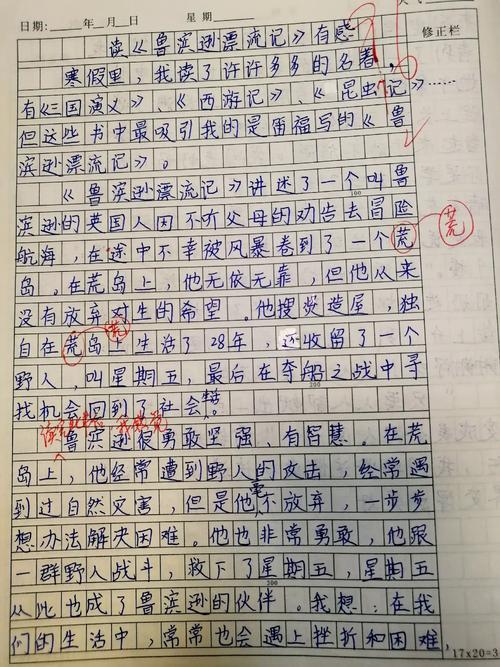 日期: 年 月 日 星期
修正栏
读《鲁滨逊漂流记》有感
寒假里，我读了许许多多的名著，
有《三国演义》、《西游记》、《昆虫记》……
但这些书中最吸引我的是笛福写的《鲁
滨逊漂流记》。
《鲁滨逊漂流记》讲述了一个叫鲁
100
滨逊的英国人因不听父母的劝告去冒险
航海，在途中不幸被风暴卷到了一个荒
荒
岛。在荒岛上，他无依无靠，但他从来
没有放弃对生的希望。他搜集造屋，独
荒
自在荒岛上生活了28年，还收留了一个
野人，叫星期五，最后在夺船之战中寻
200
找机会回到了社会。
鲁滨逊很勇敢坚强、有智慧。在荒
岛上，他经常遭到野人的攻击，经常遇
到过自然灾害，但是他不放弃，一步步
想办法解决困难。他也非常勇敢，他跟
一群野人战斗，救下了星期五，星期五
300
从此也成了鲁滨逊的伙伴。我想：在我
们的生活中，常常也会遇上挫折和困难，
17×20=3